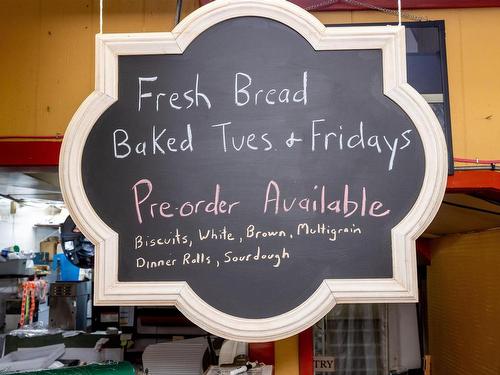 Fresh Bread
Baked Tues & Fridays
Pre-order Available
Biscuits, White, Brown, Multigrain
Dinner Rolls, Sourdough
TRY